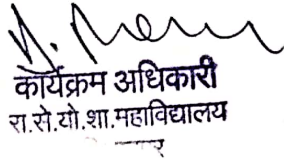 कार्यक्रम अधिकारी
रा.से.यो.शा.महाविद्यालय